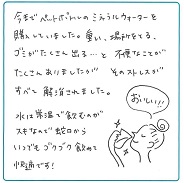 今までペットボトルのミネラルウォーターを
購入していました。重い、場所をとる、
ゴミがたくさん出る…と 不便なことが
たくさんありましたが そのストレスが
すべて 解消されました。
水は常温で飲むのが
スキなので蛇口から
いつでもゴクゴク飲めて
快適です!
おいしい!!